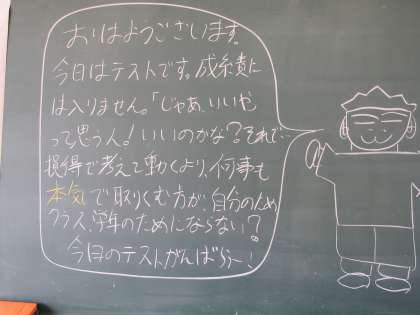 おはようございます。
今日はテストです。成績に
は入りません。「じゃあ、いいや
って思う人！いいのかな？それで…
損得で考えて動くより、何事も
本気で取りくむ方が、自分のため
クラス、学年のためにならない？
今日のテストがんばろー！